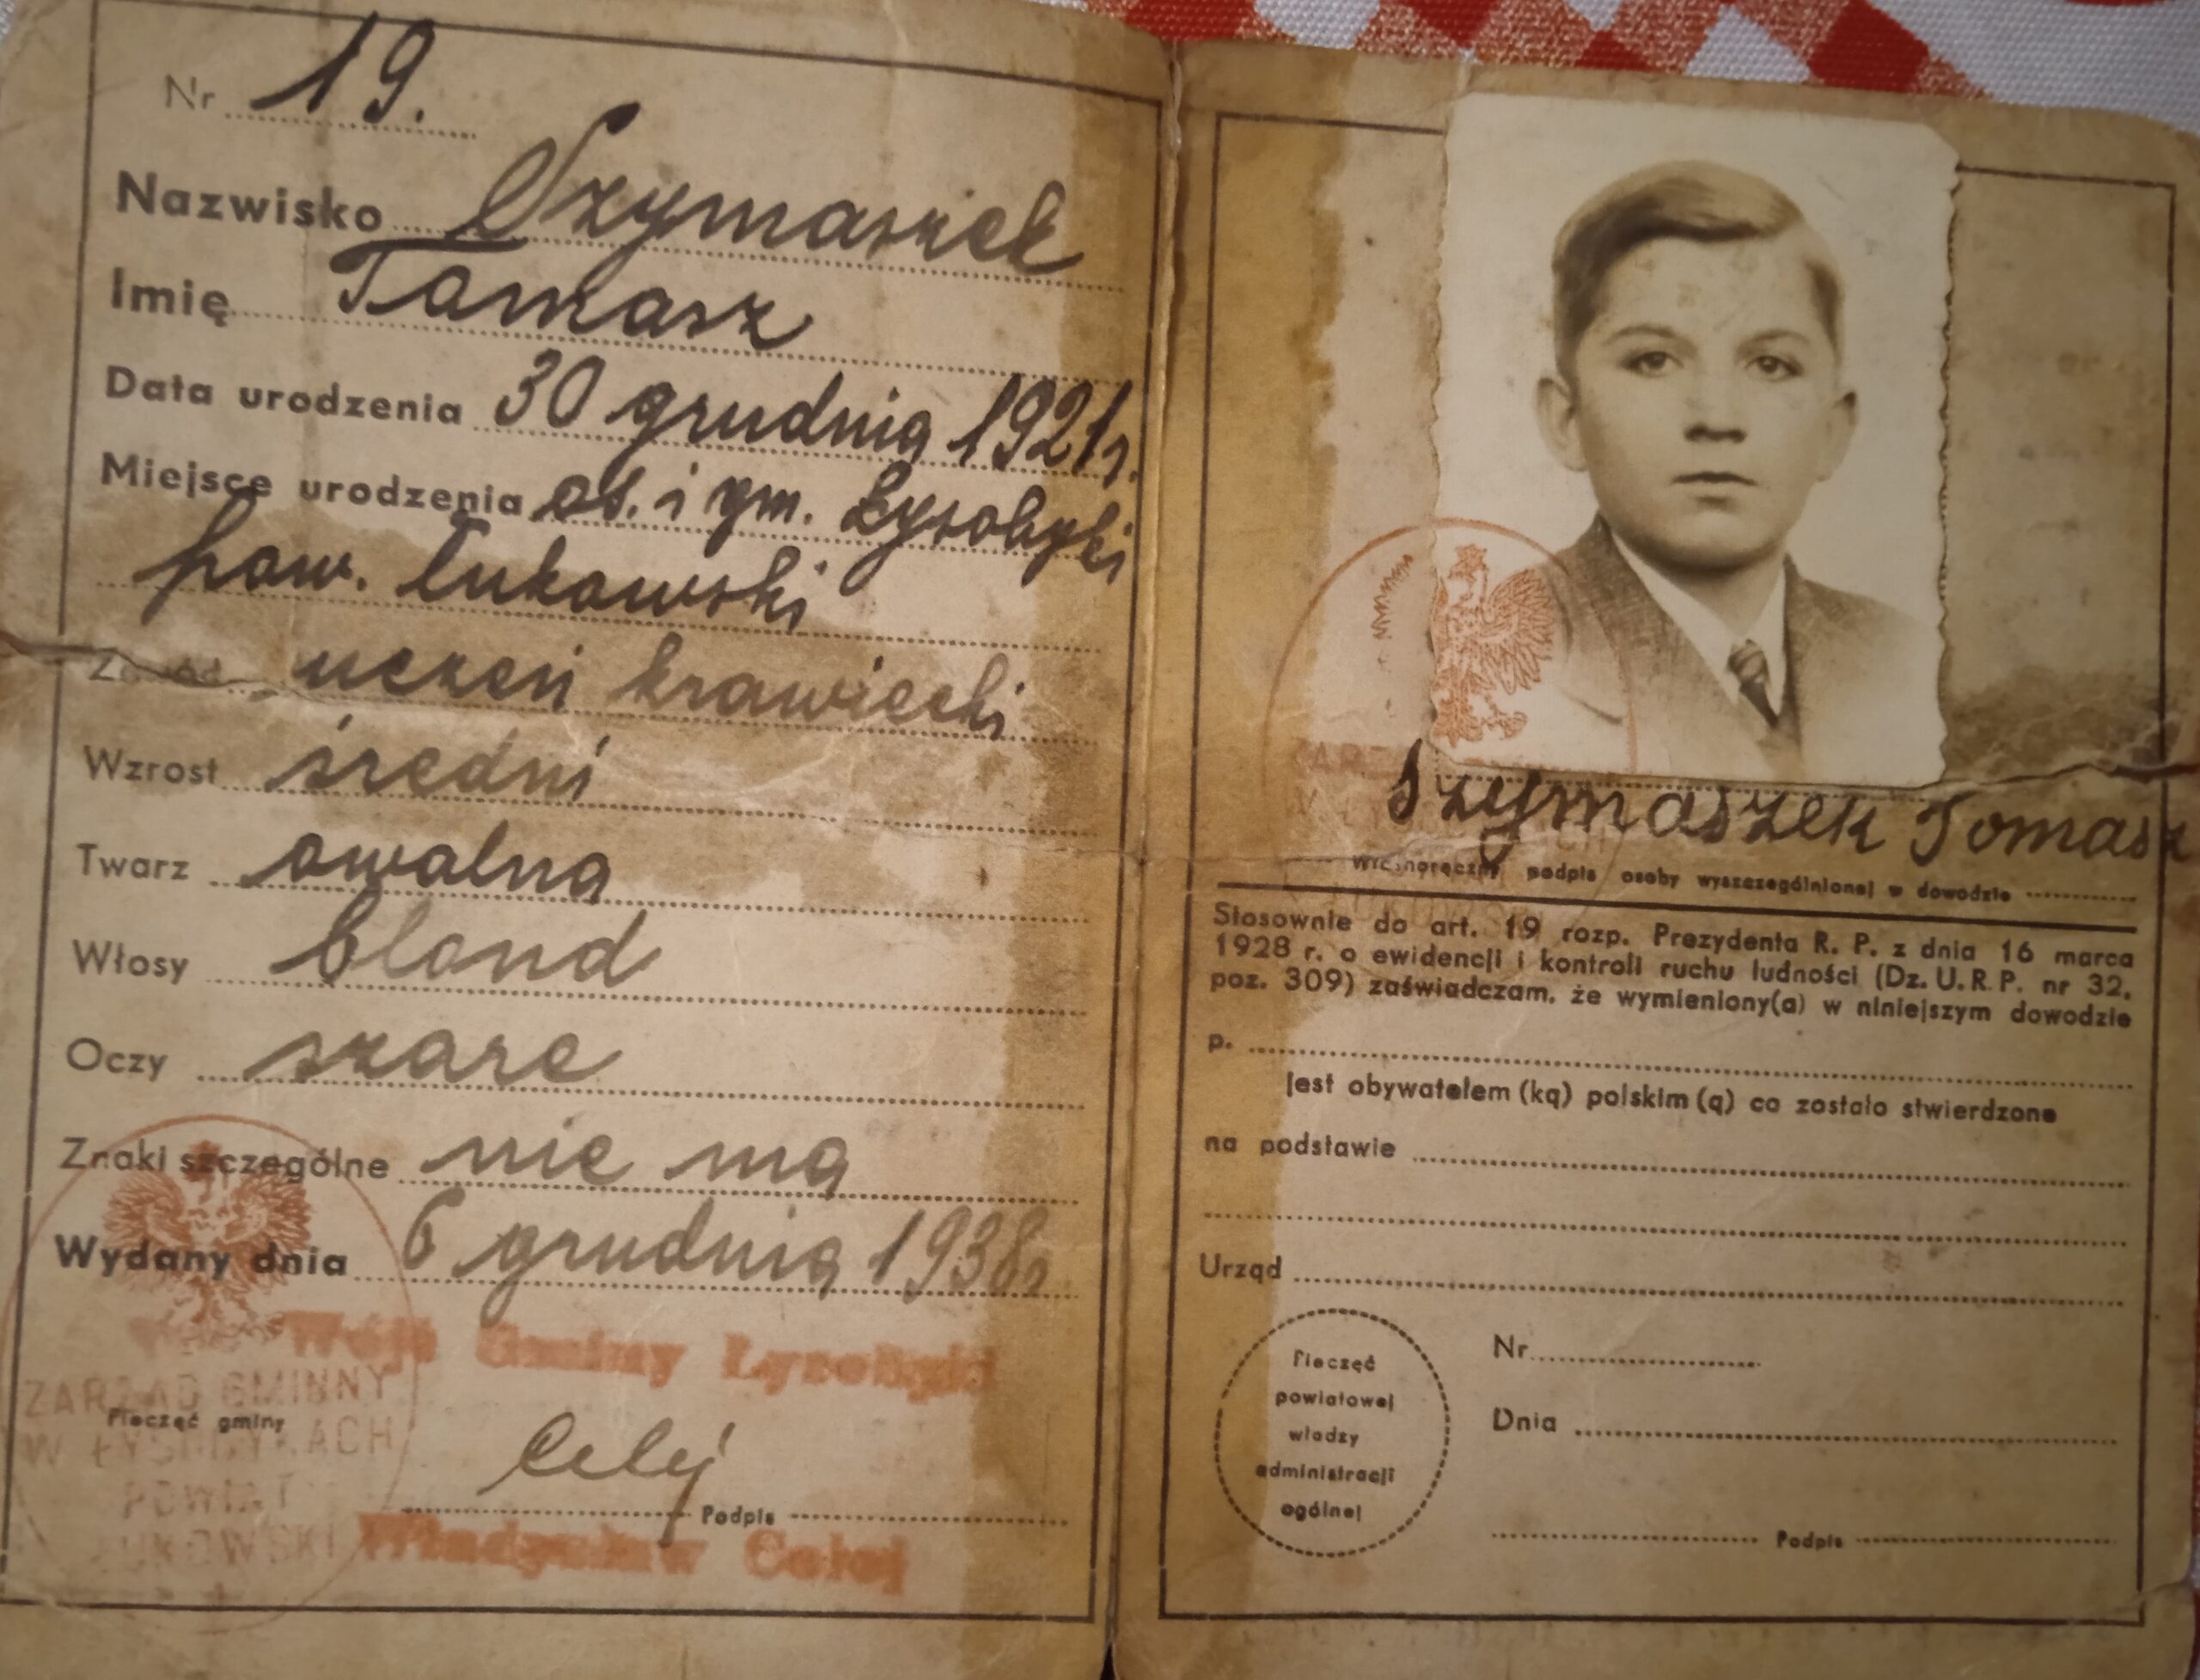 Nr 19.
Nazwisko Szymaszek
Imię Tomasz
Data urodzenia 30 grudnia 1921 r.
Miejsce urodzenia os. i gm. Łysobyki
pow. Łukowski
Zawód uczeń krawiecki
Wzrost średni
Twarz owalna
Włosy blond
Oczy szare
Znaki szczególne nie ma
Wydany dnia 6 grudnia 1938 r
Wójt Gminy Łysobyki
ZARZĄD GMINNY
Pieczęć gminy
W ŁYSOBYKACH
POWIAT
ŁUKOWSKI
Celej
Podpis
Władysław Celej
Szymaszek Tomasz
Własnoręczny podpis osoby wyszczególnionej w dowodzie
Stosownie do art. 19 rozp. Prezydenta R. P. z dnia 16 marca
1928 r. o ewidencji i kontroli ruchu ludności (Dz. U. R. P. nr 32,
poz. 309) zaświadczam, że wymieniony(a) w niniejszym dowodzie
p.
jest obywatelem (ką) polskim (ą) co zostało stwierdzone
na podstawie
Urząd
Pieczęć
powiatowej
władzy
administracji
ogólnej
Nr
Dnia
Podpis